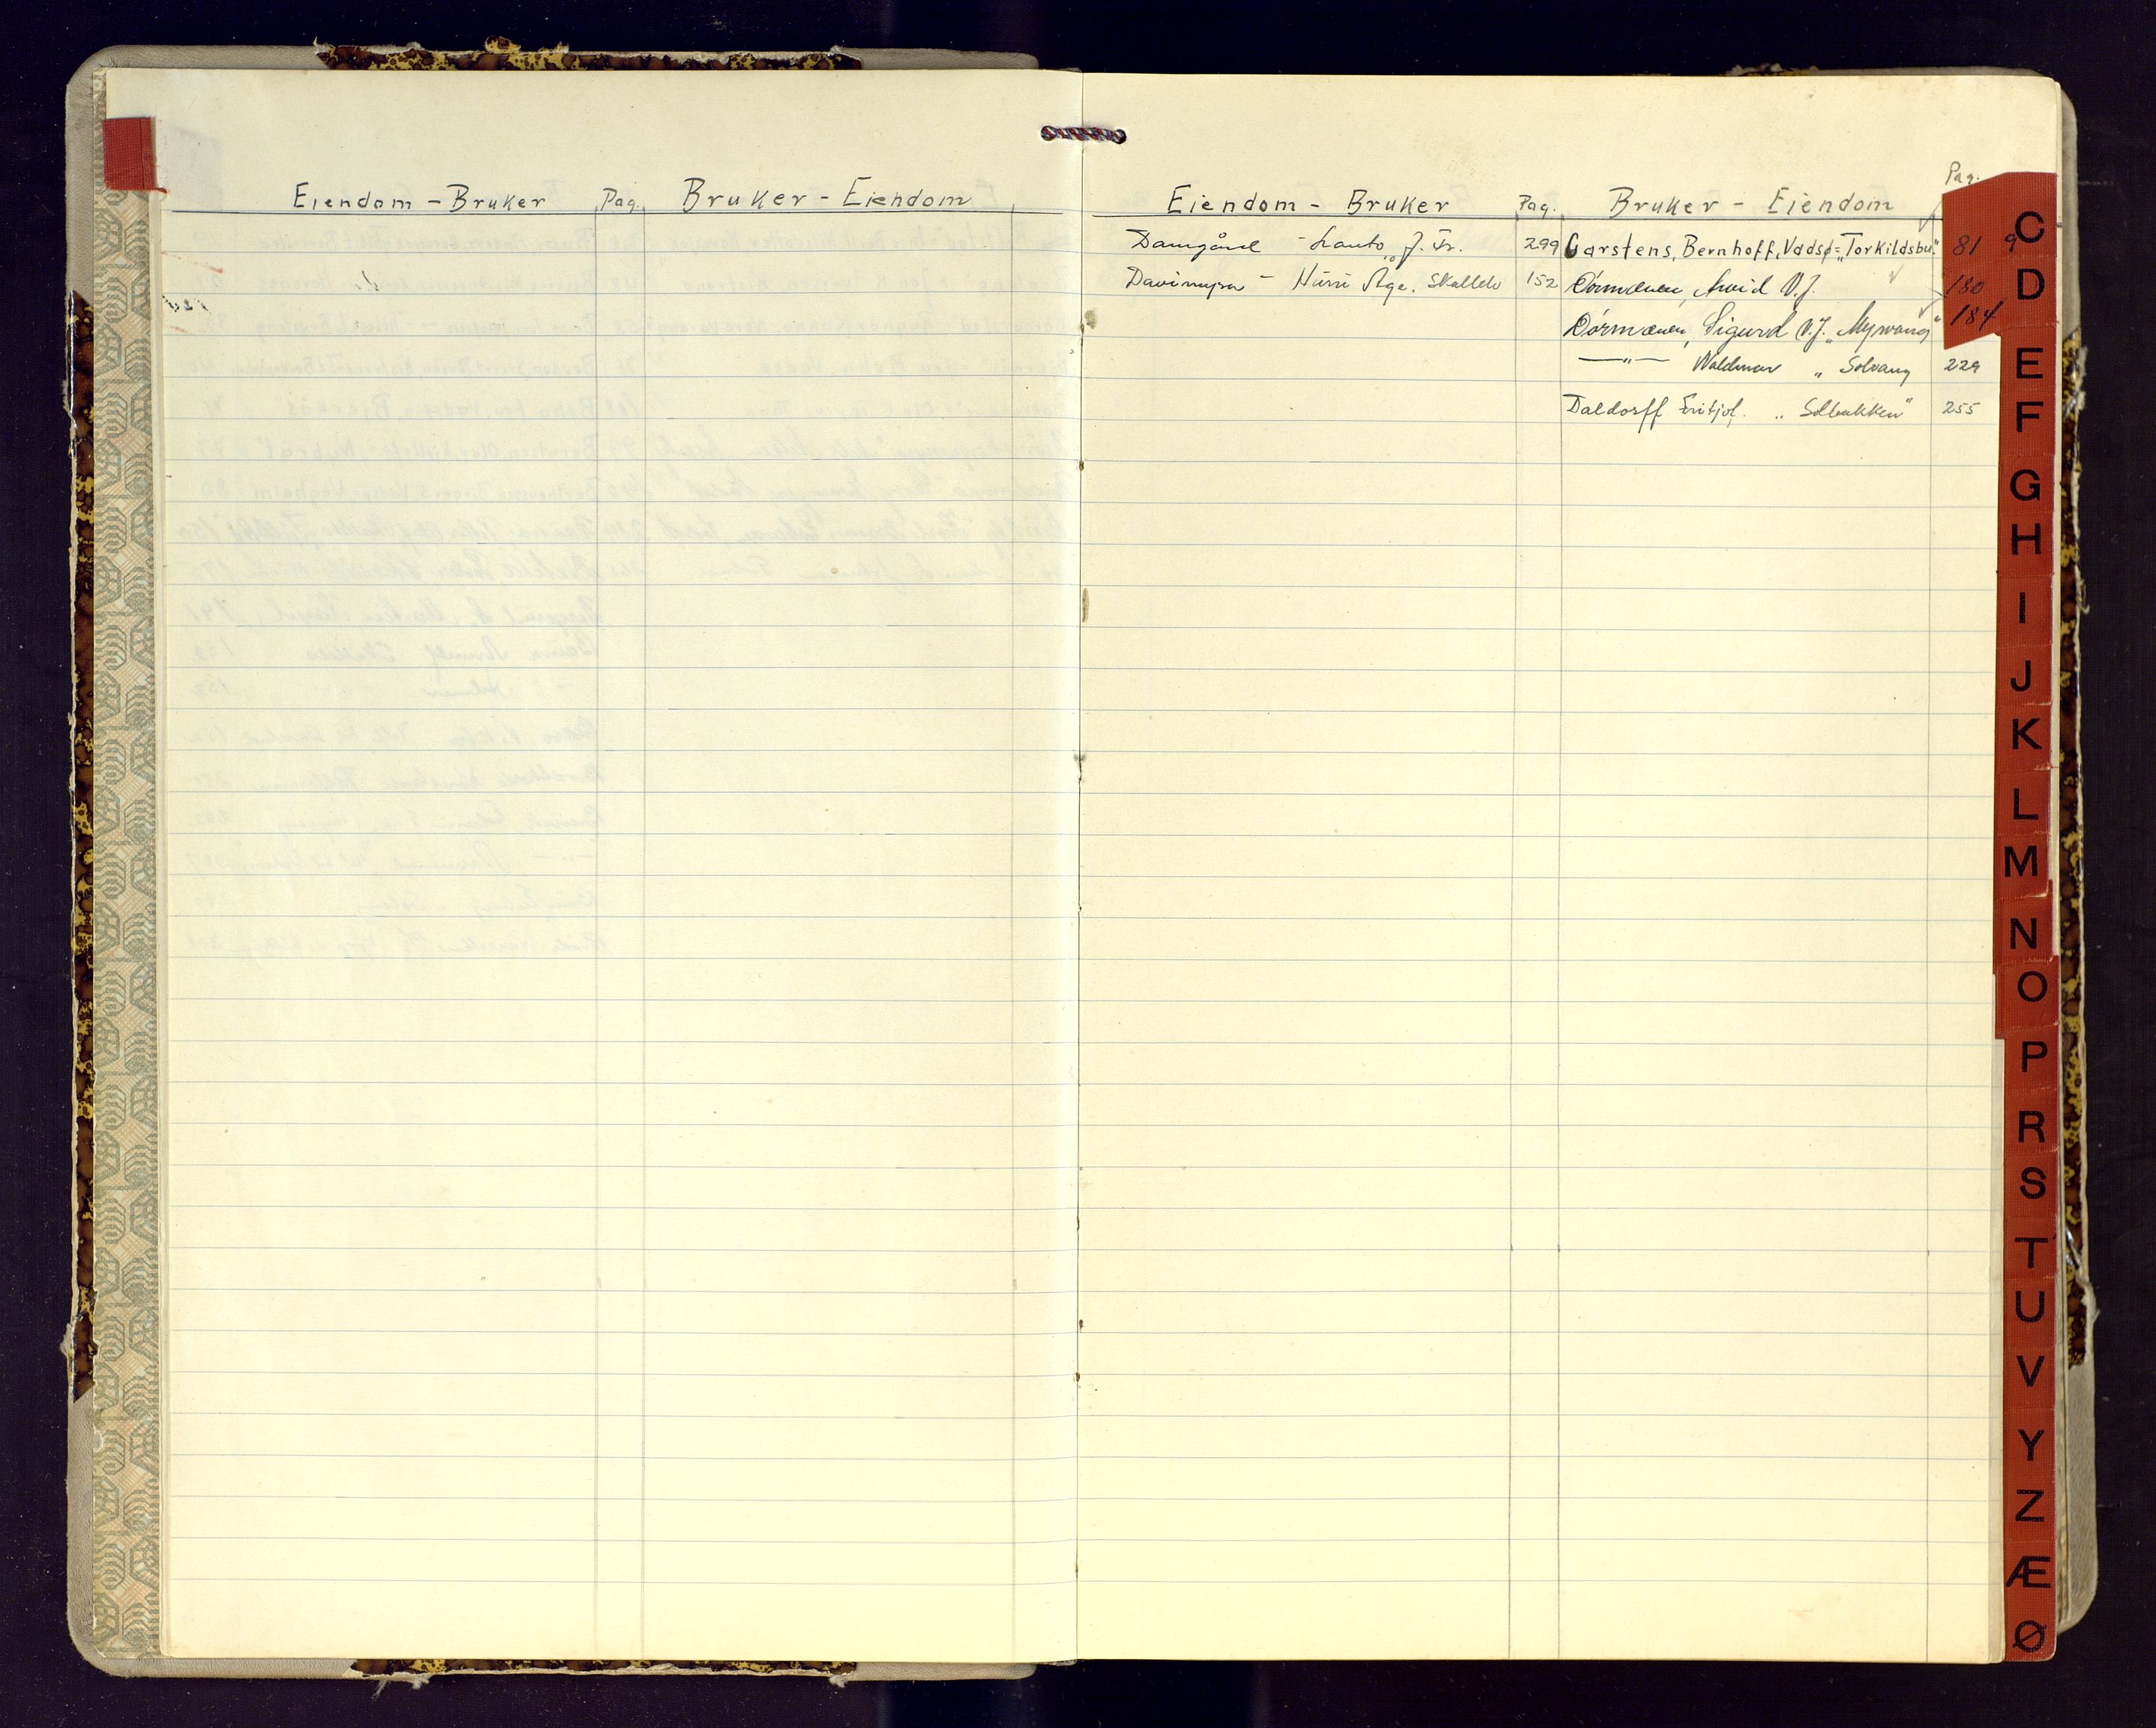 Eiendom - Bruker Pag. Bruker - Eiendom
Eiendom - Bruker Pag. Bruker - Eiendom Pag.
Damgård - Lauto, J. Fr. 299
Carstens, Bernhoff, Vadsø = "Torkildsbu" 81 9
- Huru Åge. Skallelv 152
Arvid V.J. 180
Sigurd V.J. "Myrvang" 184
—"— Waldmar " Solvang 229
Daldorff Fritjof. "Solbakken" 255
C
D
E
F
G
H
I
J
K
L
M
N
O
P
R
S
T
U
V
Y
Z
Æ
Ø